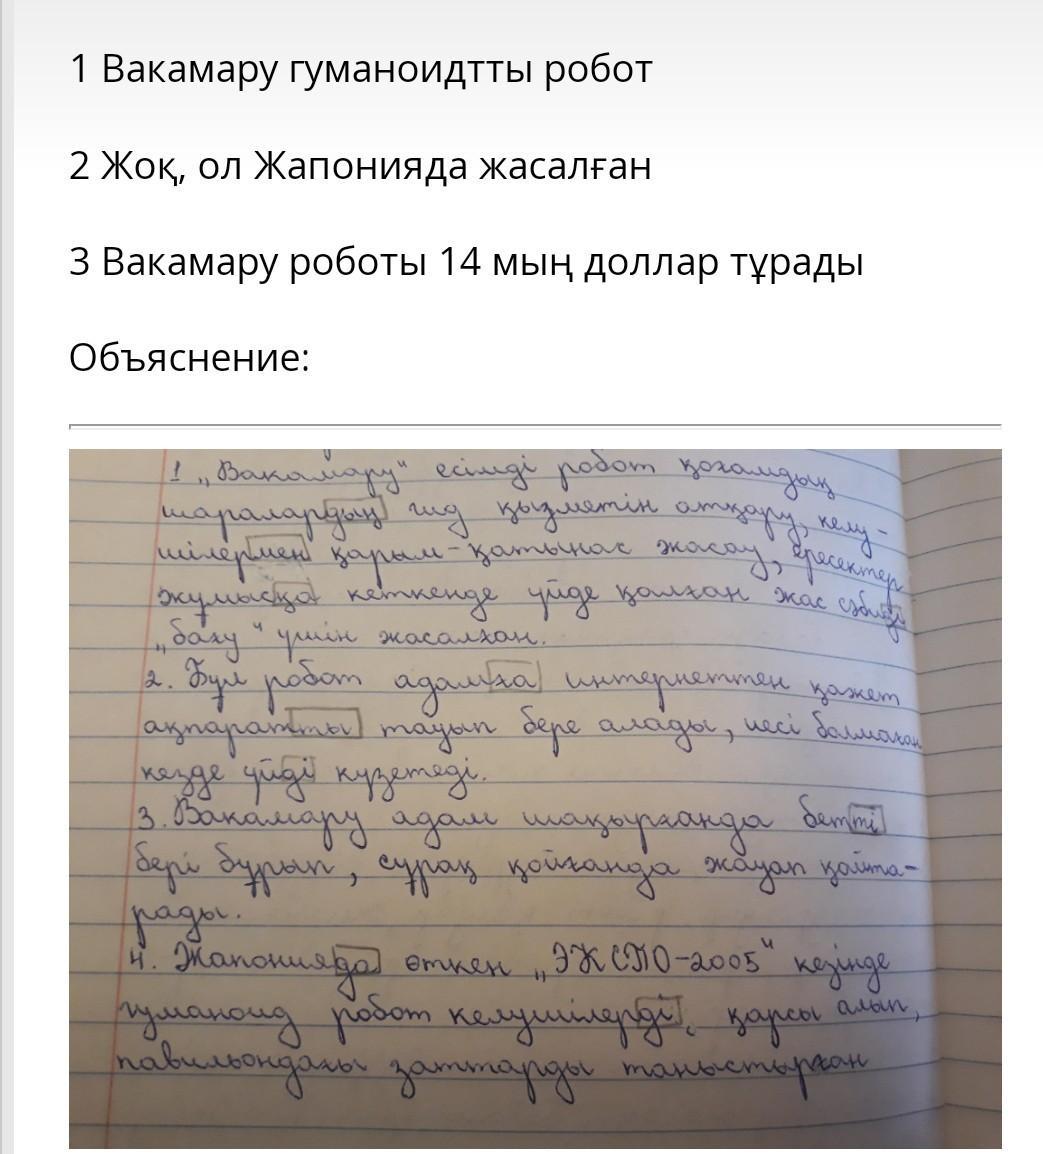 1 Вакамару гуманоидтты робот
2 Жоқ, ол Жапонияда жасалған
3 Вакамару роботы 14 мың доллар тұрады
Объяснение:
1 „Вакамару“ есімді робот қоғамдық
шаралардың гид қызметін атқару, келу-
шілермен қарым-қатынас жасау, ересектер
жұмысқа кеткенде үйде қалған жас сәбиді
„бағу“ үшін жасалған.
2. Бұл робот адамға интернеттен қажет
ақпаратты тауып бере алады, иесі болмаған
кезде үйді күзетеді.
3. Вакамару адам шақырғанда бетті
бері бұрып, сұрақ қойғанда жауап қайта-
рады.
4. Жапонияда өткен „ЭКСПО-2005“ кезінде
гуманоид робот келушілерді, қарсы алып,
павильондағы заттарды таныстырған